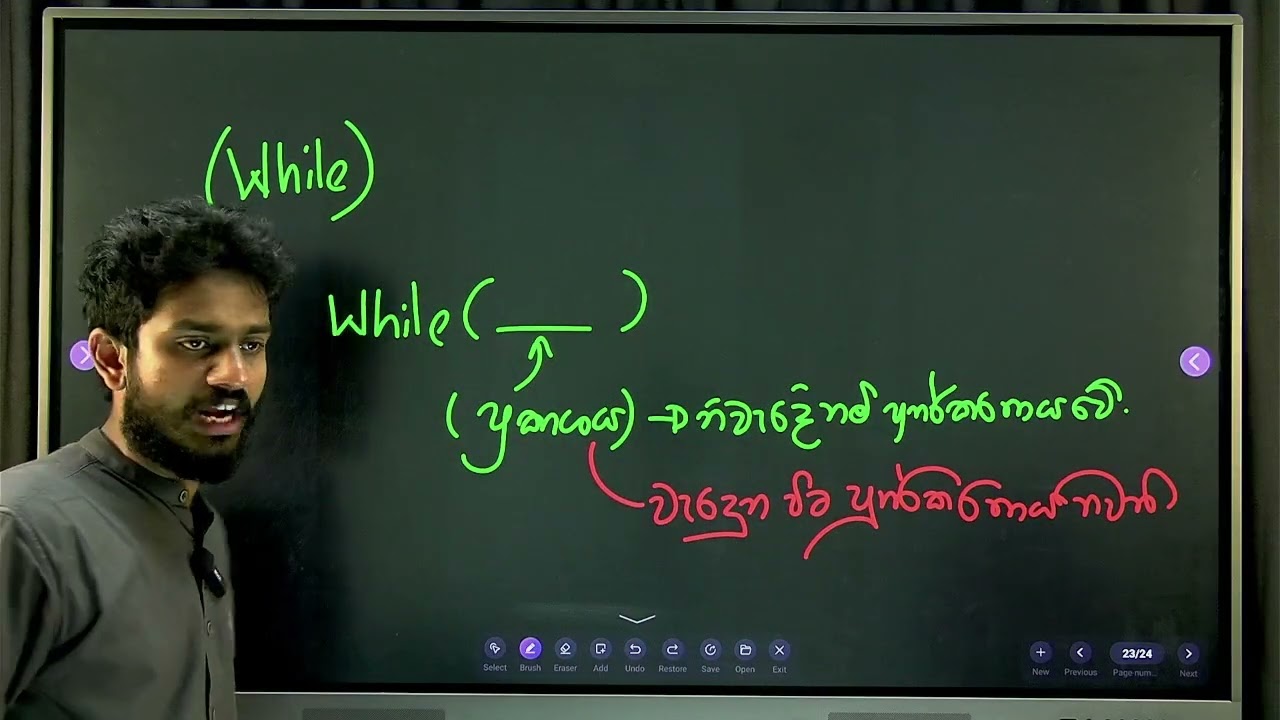 (While)
While( ___ )
(ප්‍රකාශය) → නිවැරදි නම් පුනර්කරණය වේ.
වැරදුන විට පුනර්කරණය නවතී
Select Brush Eraser Add Undo Restore Save Open Exit
+ < 23/24 >
New Previous Page num... Next